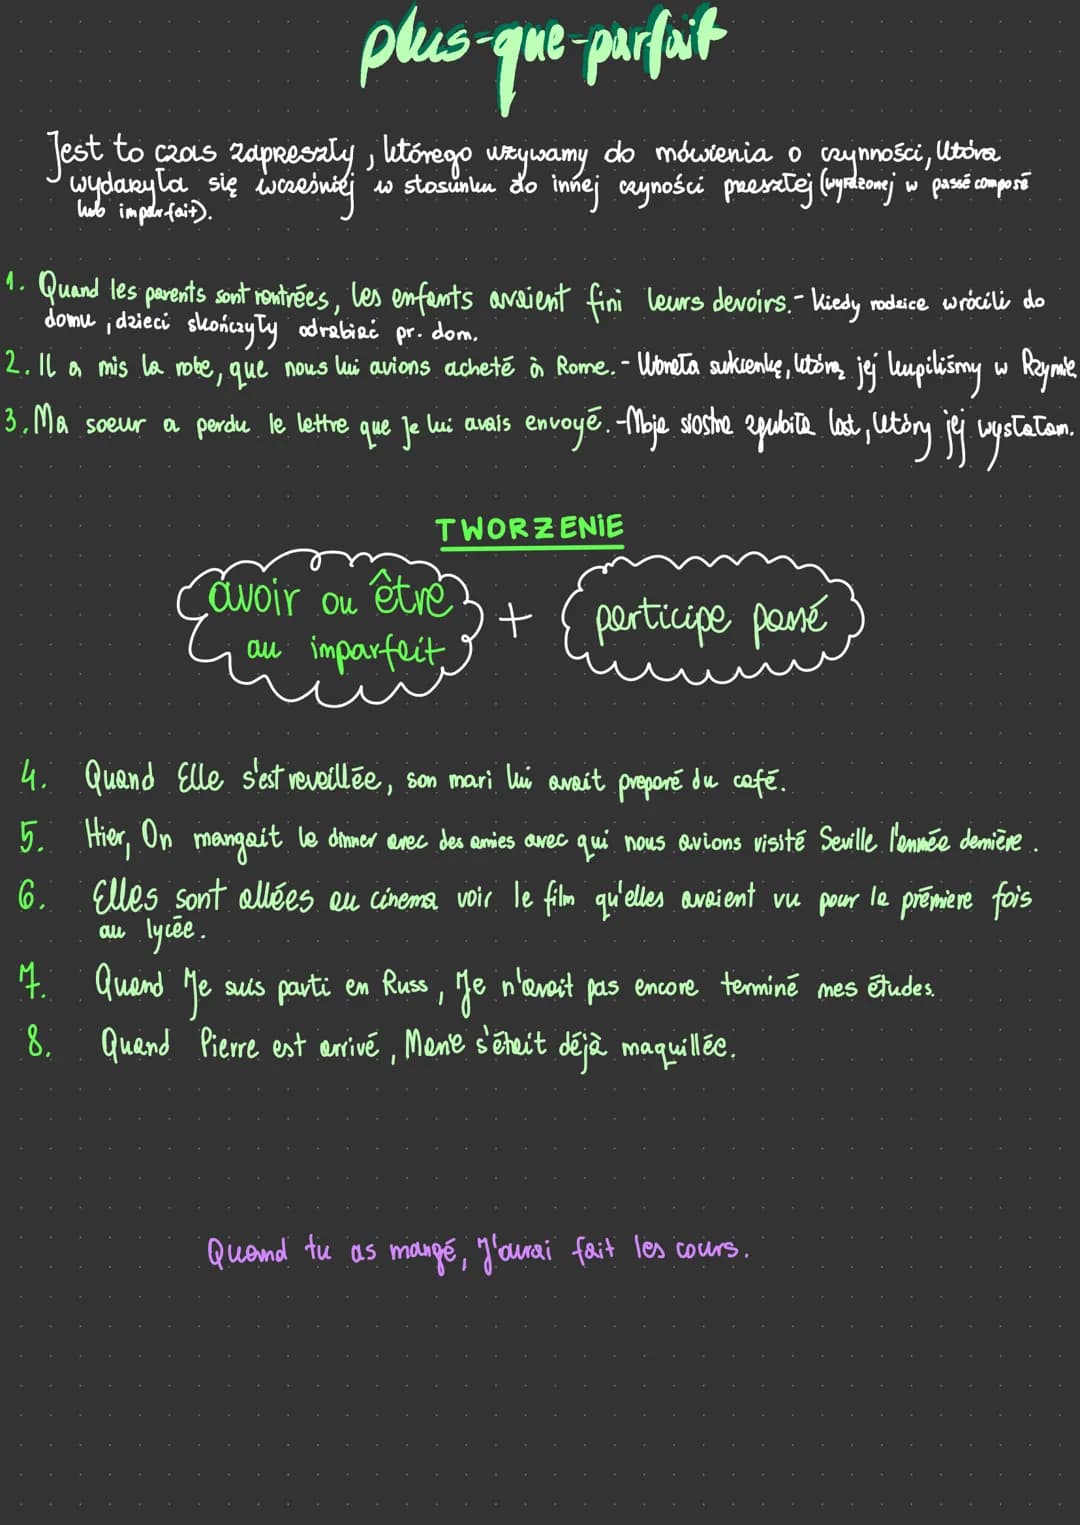 plus-que-parfait
Jest to czas zapreszły, którego używamy do mówienia o czynności, która
wydaryła się wcześniej w stosunku do innej czyności przeszłej (wyrażonej w passé composé
lub imparfait).
1. Quand les parents sont rentrées, les enfants avaient fini leurs devoirs. - Kiedy rodzice wrócili do
domu, dzieci skończyły odrabiać pr. dom.
2. Il a mis la robe, que nous lui avions acheté à Rome. - Włożyła sukienkę, którą jej kupiliśmy w Rzymie
3. Ma soeur a perdu le lettre que je lui avais envoyé. - Moja siostra zgubiła list, który jej wysłałam.
TWORZENIE
avoir ou être
au imparfait
+
participe passé
4. Quand Elle s'est reveillée, son mari lui avait preparé du café.
5. Hier, On mangait le dinner avec des amies avec qui nous avions visité Seville l'année dernière.
6. Elles sont allées au cinema voir le film qu'elles avaient vu pour la prémiere fois
au lycée.
7. Quand Je suis parti en Russ, Je n'avait pas encore terminé mes études.
8. Quand Pierre est arrivé, Marie s'était déjà maquillée.
Quand tu as mangé, J'aurai fait les cours.